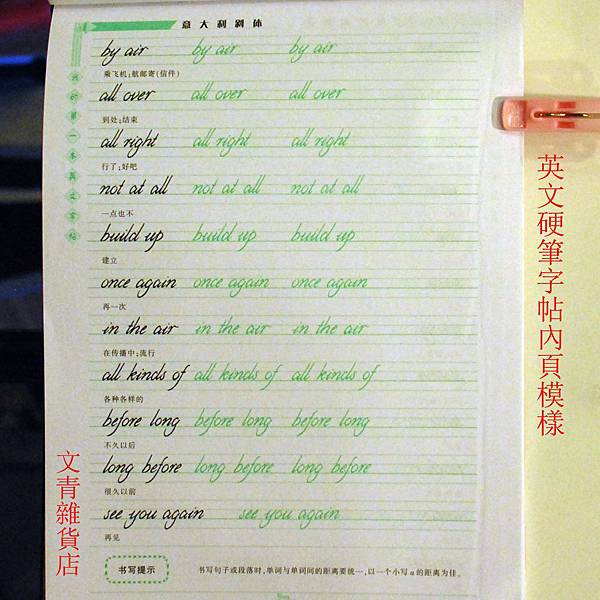 意大利斜体
我的第一本英文字帖
by air by air by air
乘飞机;航邮寄(信件)
all over all over all over
到处;结束
all right all right all right
行了;好吧
not at all not at all not at all
一点也不
build up build up build up
建立
once again once again once again
再一次
in the air in the air in the air
在传播中;流行
all kinds of all kinds of all kinds of
各种各样的
before long before long before long
不久以后
long before long before long before
很久以前
see you again see you again
再见
书写提示 书写句子或段落时,单词与单词间的距离要统一,以一个小写a的距离为佳。
英文硬筆字帖內頁模樣
文青雜貨店